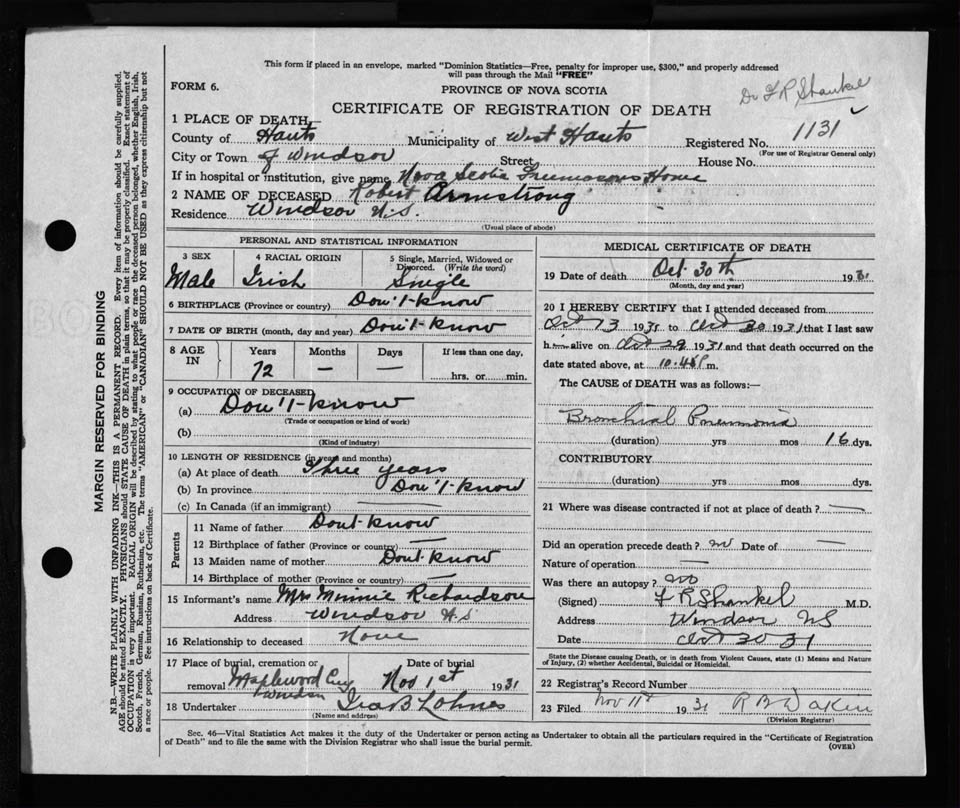 This form if placed in an envelope, marked "Dominion Statistics—Free, penalty for improper use, $300," and properly addressed
will pass through the Mail "FREE"
FORM 6.
PROVINCE OF NOVA SCOTIA
Dr F R Shankel
CERTIFICATE OF REGISTRATION OF DEATH
1 PLACE OF DEATH—
County of Hants Municipality of West Hants Registered No. 1131
(For use of Registrar General only)
City or Town of Windsor Street House No.
If in hospital or institution, give name Nova Scotia Freemasons Home
2 NAME OF DECEASED Robert Armstrong
Residence Windsor N.S.
(Usual place of abode)
PERSONAL AND STATISTICAL INFORMATION
3 SEX Male
4 RACIAL ORIGIN Irish
5 Single, Married, Widowed or Divorced. (Write the word) Single
6 BIRTHPLACE (Province or country) Don't-know
7 DATE OF BIRTH (month, day and year) Don't-know
8 AGE IN Years Months Days If less than one day,
72 — — hrs. or min.
9 OCCUPATION OF DECEASED
(a) Don't-know
(Trade or occupation or kind of work)
(b)
(Kind of industry)
10 LENGTH OF RESIDENCE (in years and months)
(a) At place of death Three years
(b) In province Don't-know
(c) In Canada (if an immigrant) —
Parents
11 Name of father Dont-know
12 Birthplace of father (Province or country) —
13 Maiden name of mother Dont-know
14 Birthplace of mother (Province or country) —
15 Informant's name Mrs Minnie Richardson
Address Windsor N.S
16 Relationship to deceased None
17 Place of burial, cremation or removal Maplewood Cem Windsor
Date of burial Nov 1st 1931
18 Undertaker Ira B Lohnes
(Name and address)
MEDICAL CERTIFICATE OF DEATH
19 Date of death Oct. 30th 1931
(Month, day and year)
20 I HEREBY CERTIFY that I attended deceased from
Oct 13 1931 to Oct 30 1931 that I last saw
h alive on Oct 29 1931 and that death occurred on the
date stated above, at 10.45 P m.
The CAUSE of DEATH was as follows:—
Bronchial Pneumonia
(duration) yrs mos 16 dys.
CONTRIBUTORY
(duration) yrs mos dys.
21 Where was disease contracted if not at place of death? —
Did an operation precede death? no Date of —
Nature of operation —
Was there an autopsy? no
(Signed) F R Shankel M.D.
Address Windsor NS
Date Oct 30 31
State the Disease causing Death, or in death from Violent Causes, state (1) Means and Nature
of Injury, (2) whether Accidental, Suicidal or Homicidal.
22 Registrar's Record Number
23 Filed Nov 11th 1931 R B Dakin
(Division Registrar)
Sec. 46—Vital Statistics Act makes it the duty of the Undertaker or person acting as Undertaker to obtain all the particulars required in the "Certificate of Registration
of Death" and to file the same with the Division Registrar who shall issue the burial permit.
(OVER)
MARGIN RESERVED FOR BINDING
N.B.—WRITE PLAINLY WITH UNFADING INK—THIS IS A PERMANENT RECORD. Every item of information should be carefully supplied.
AGE should be stated EXACTLY. PHYSICIANS should STATE CAUSE OF DEATH in plain terms, so that it may be properly classified. Exact statement of
OCCUPATION is very important. RACIAL ORIGIN will be described by stating to what people or race the deceased person belonged, whether English, Irish,
Scotch, French, German, Russian, Ruthenian, etc. The terms "AMERICAN" or "CANADIAN" SHOULD NOT BE USED as they express citizenship but not
a race or people. See instructions on back of Certificate.